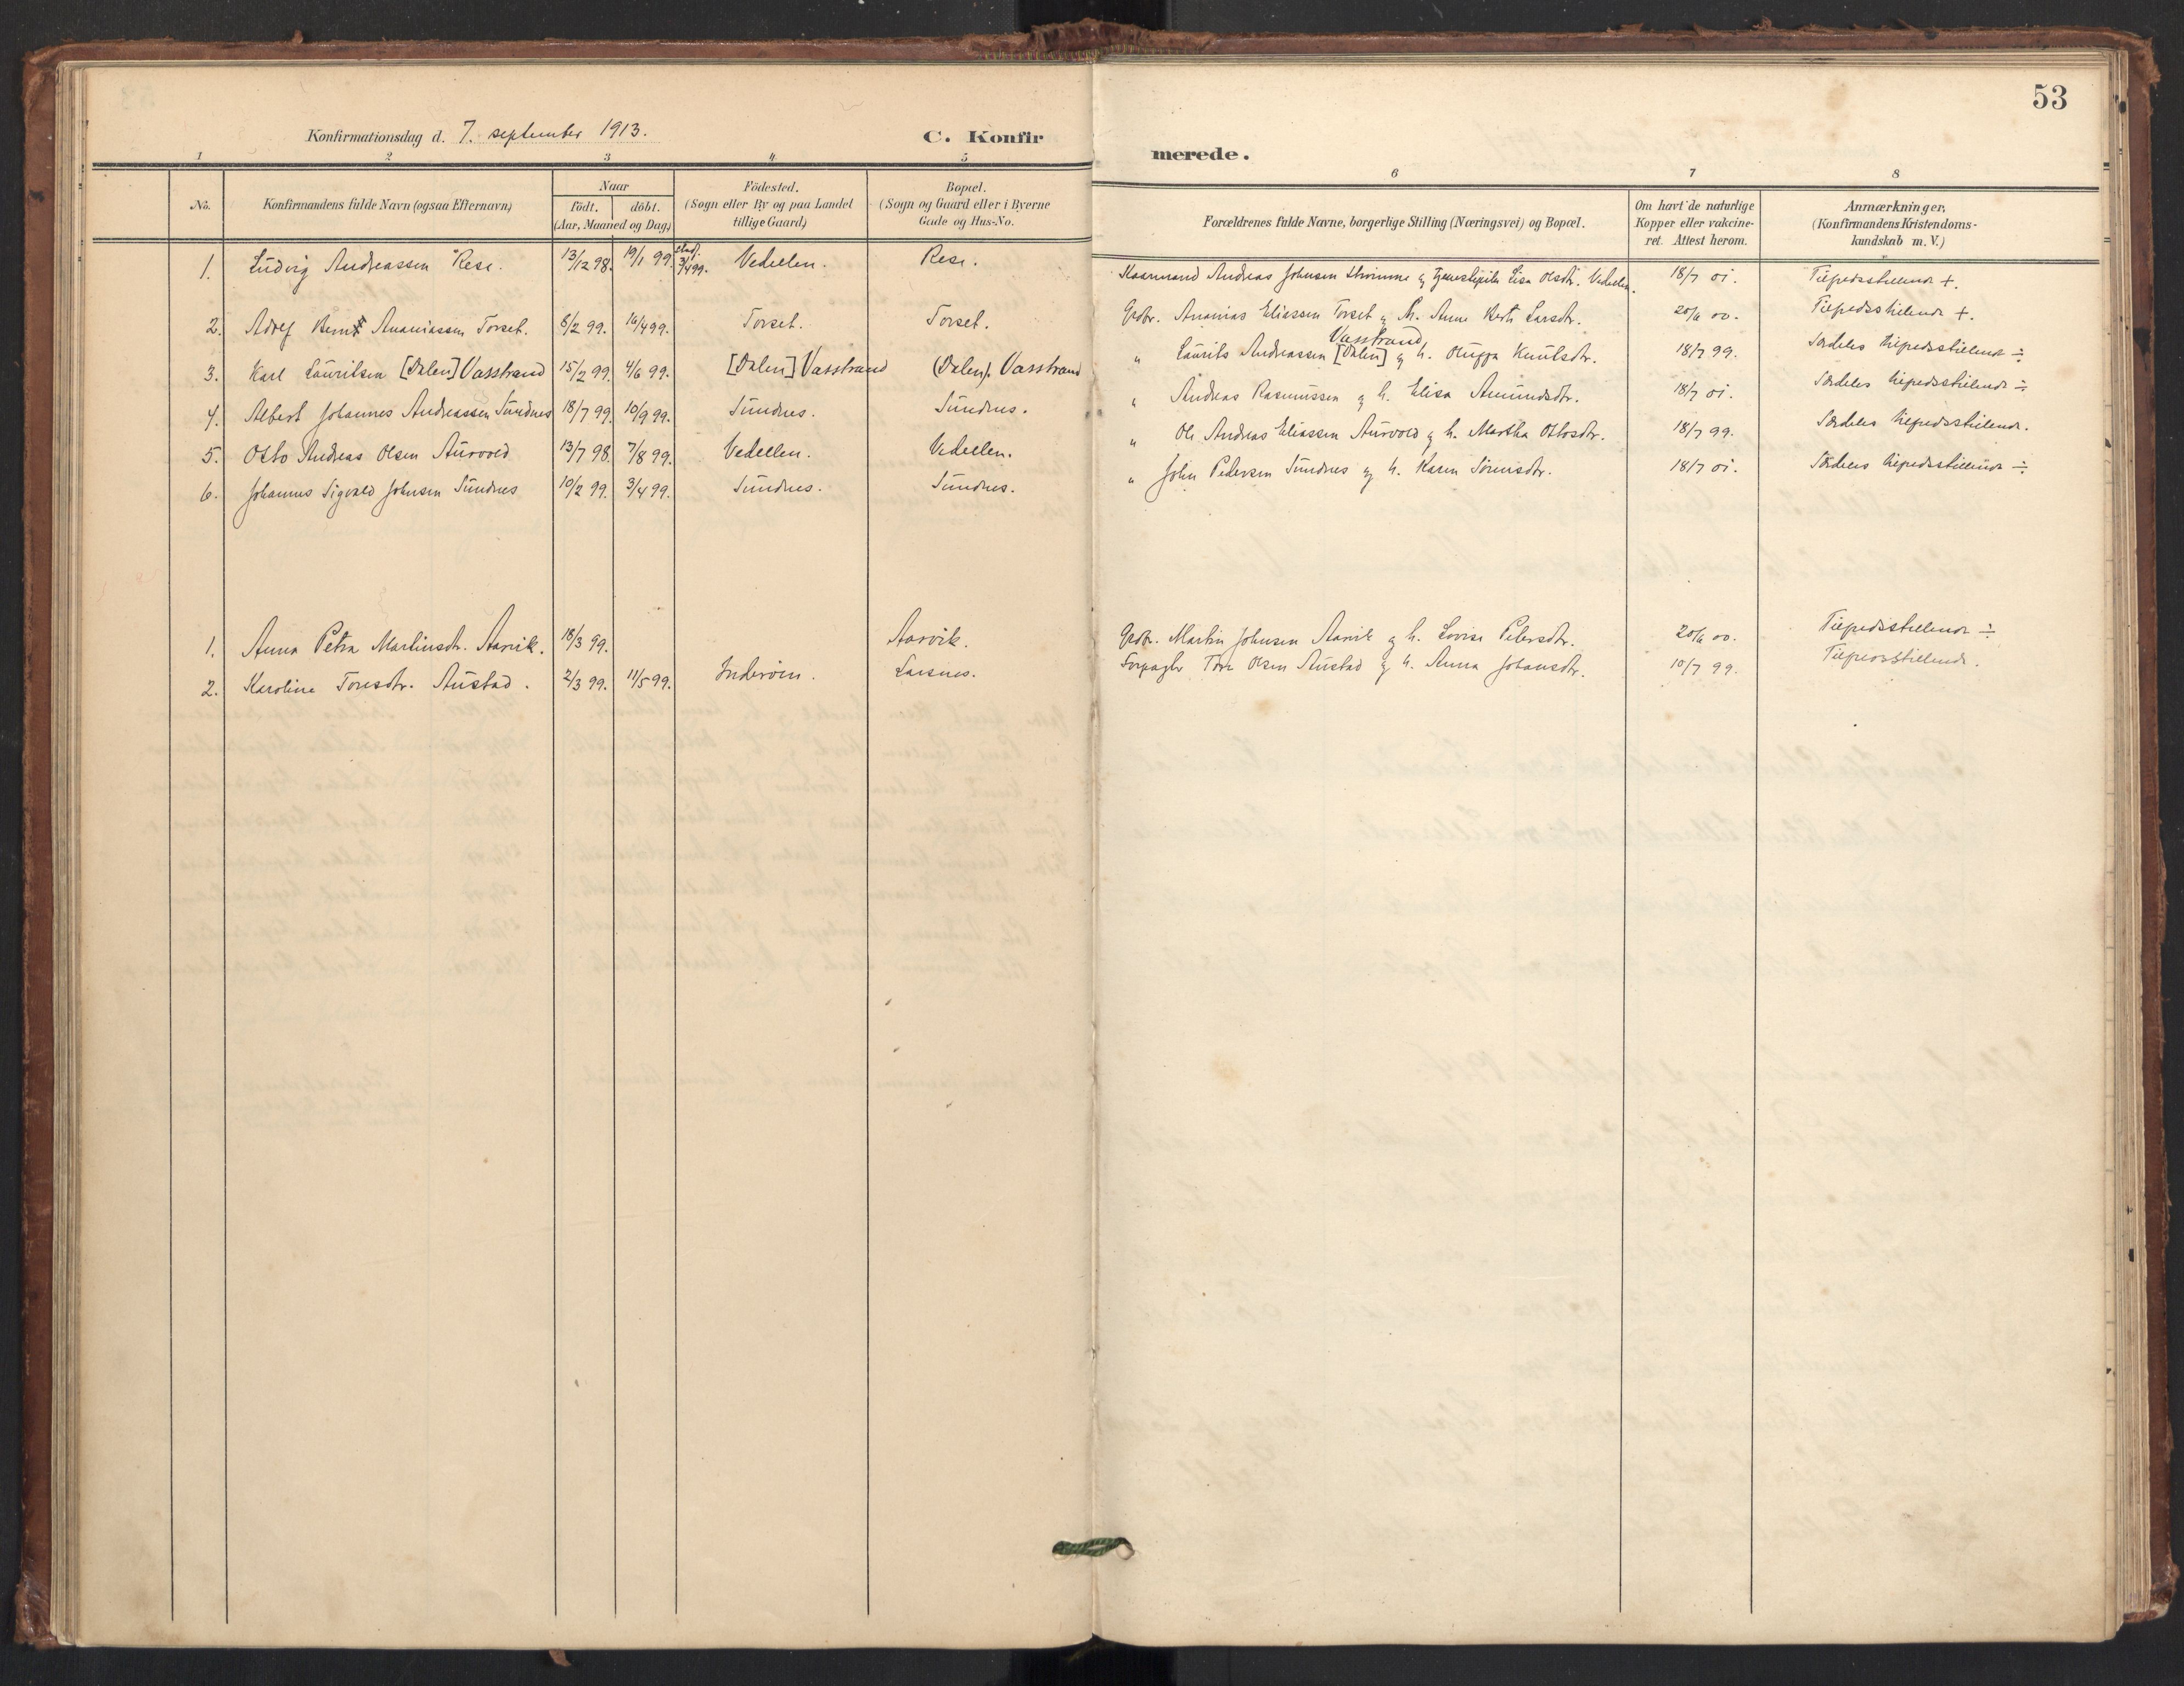 53
Konfirmationsdag d. 7. september 1913.
C. Konfir
merede.
1 2 3 4 5
6 7 8
No.
Konfirmandens fulde Navn (ogsaa Efternavn)
Naar
födt. döbt.
(Aar, Maaned og Dag)
Födested.
(Sogn eller By og paa Landet
tillige Gaard)
Bopæl.
(Sogn og Gaard eller i Byerne
Gade og Hus-No.
Forældrenes fulde Navne, borgerlige Stilling (Næringsvei) og Bopæl.
Om havt de naturlige
Kopper eller vakcine-
ret. Attest herom.
Anmærkninger,
(Konfirmandens Kristendoms-
kundskab m. V.)
1. Ludvig Andreassen Rese. 13/12 98. 19/1 99. stad. 3/4 99. Vedeellen. Rese. Andreas Johnsen og Lisa Olsdtr. Vedeellen. 18/7 01. Tilfredsstillende +.
2. Adolf Bernt Ananiassen Torset. 8/2 99. 16/4 99. Torset. Torset. Gdbr. Ananias Eliassen Torset og h. Anne Larsdtr. 20/6 00. Tilfredsstillende +.
Vasstrand
3. Karl Lauritsen [Dalen] Vasstrand 15/2 99. 4/6 99. [Dalen] Vasstrand (Dalen). Vasstrand " Laurits Andreassen [Dalen] og h. Knutsdtr. 18/7 99. Særdeles tilfredsstillende ÷
4. Albert Johannes Andreassen Sundnes 18/7 99. 10/9 99. Sundnes. Sundnes. " Andreas Rasmussen og h. Elisa Amundsdtr. 18/7 01. Særdeles tilfredsstillende ÷
5. Otto Andreas Olsen Aurvold 13/7 98. 7/8 99. Vedeellen. Vedeellen. " Ole Andreas Eliassen Aurvold og h. Martha Ottosdtr. 18/7 99. Særdeles tilfredsstillende.
6. Johannes Sigvald Johnsen Sundnes 10/2 99. 3/4 99. Sundnes. Sundnes. " John Pedersen Sundnes og h. Karen 18/7 01. Særdeles tilfredsstillende ÷
1. Anna Petra Martinsdtr. Aarvik. 18/3 99. Aarvik. Gdbr. Martin Johnsen Aarvik og h. Lovise Petersdtr. 20/6 00. Tilfredsstillende ÷
2. Karoline Toresdtr. Austad. 2/3 99. 11/5 99. Inderøen. Larsnes. Forpagter Tore Olsen Austad og h. Anna Johansdtr. 10/7 99. Tilfredsstillende.